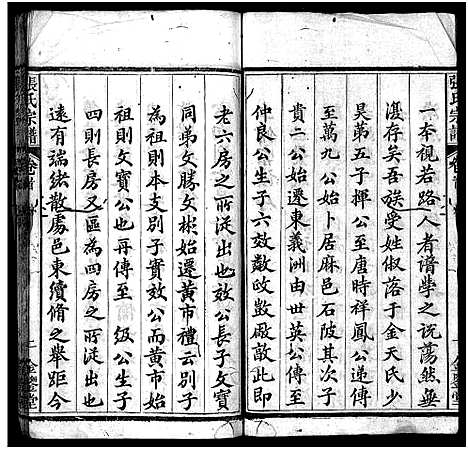 張氏宗譜
一本視若路人者譜學之說蕩然無
復存矣吾族受姓俶落于金天氏少
昊弟五子揮公至唐時祥鳳公遞傳
至萬九公始卜居麻邑石陂其次子
貴二公始遷東義洲由世英公傳至
仲良公生子六效數 敳 敵此即
老六房之所從出也效公長子文寶
同弟文勝文彬始遷黃市禮云別子
為祖則本支別子實效公而黃市始
祖則文寶公也再傳至 級公生子
四則長房又區為四房之所從出也
遠有端緒散處邑東續脩之舉距今
張氏宗譜
卷首
二
金鑒堂